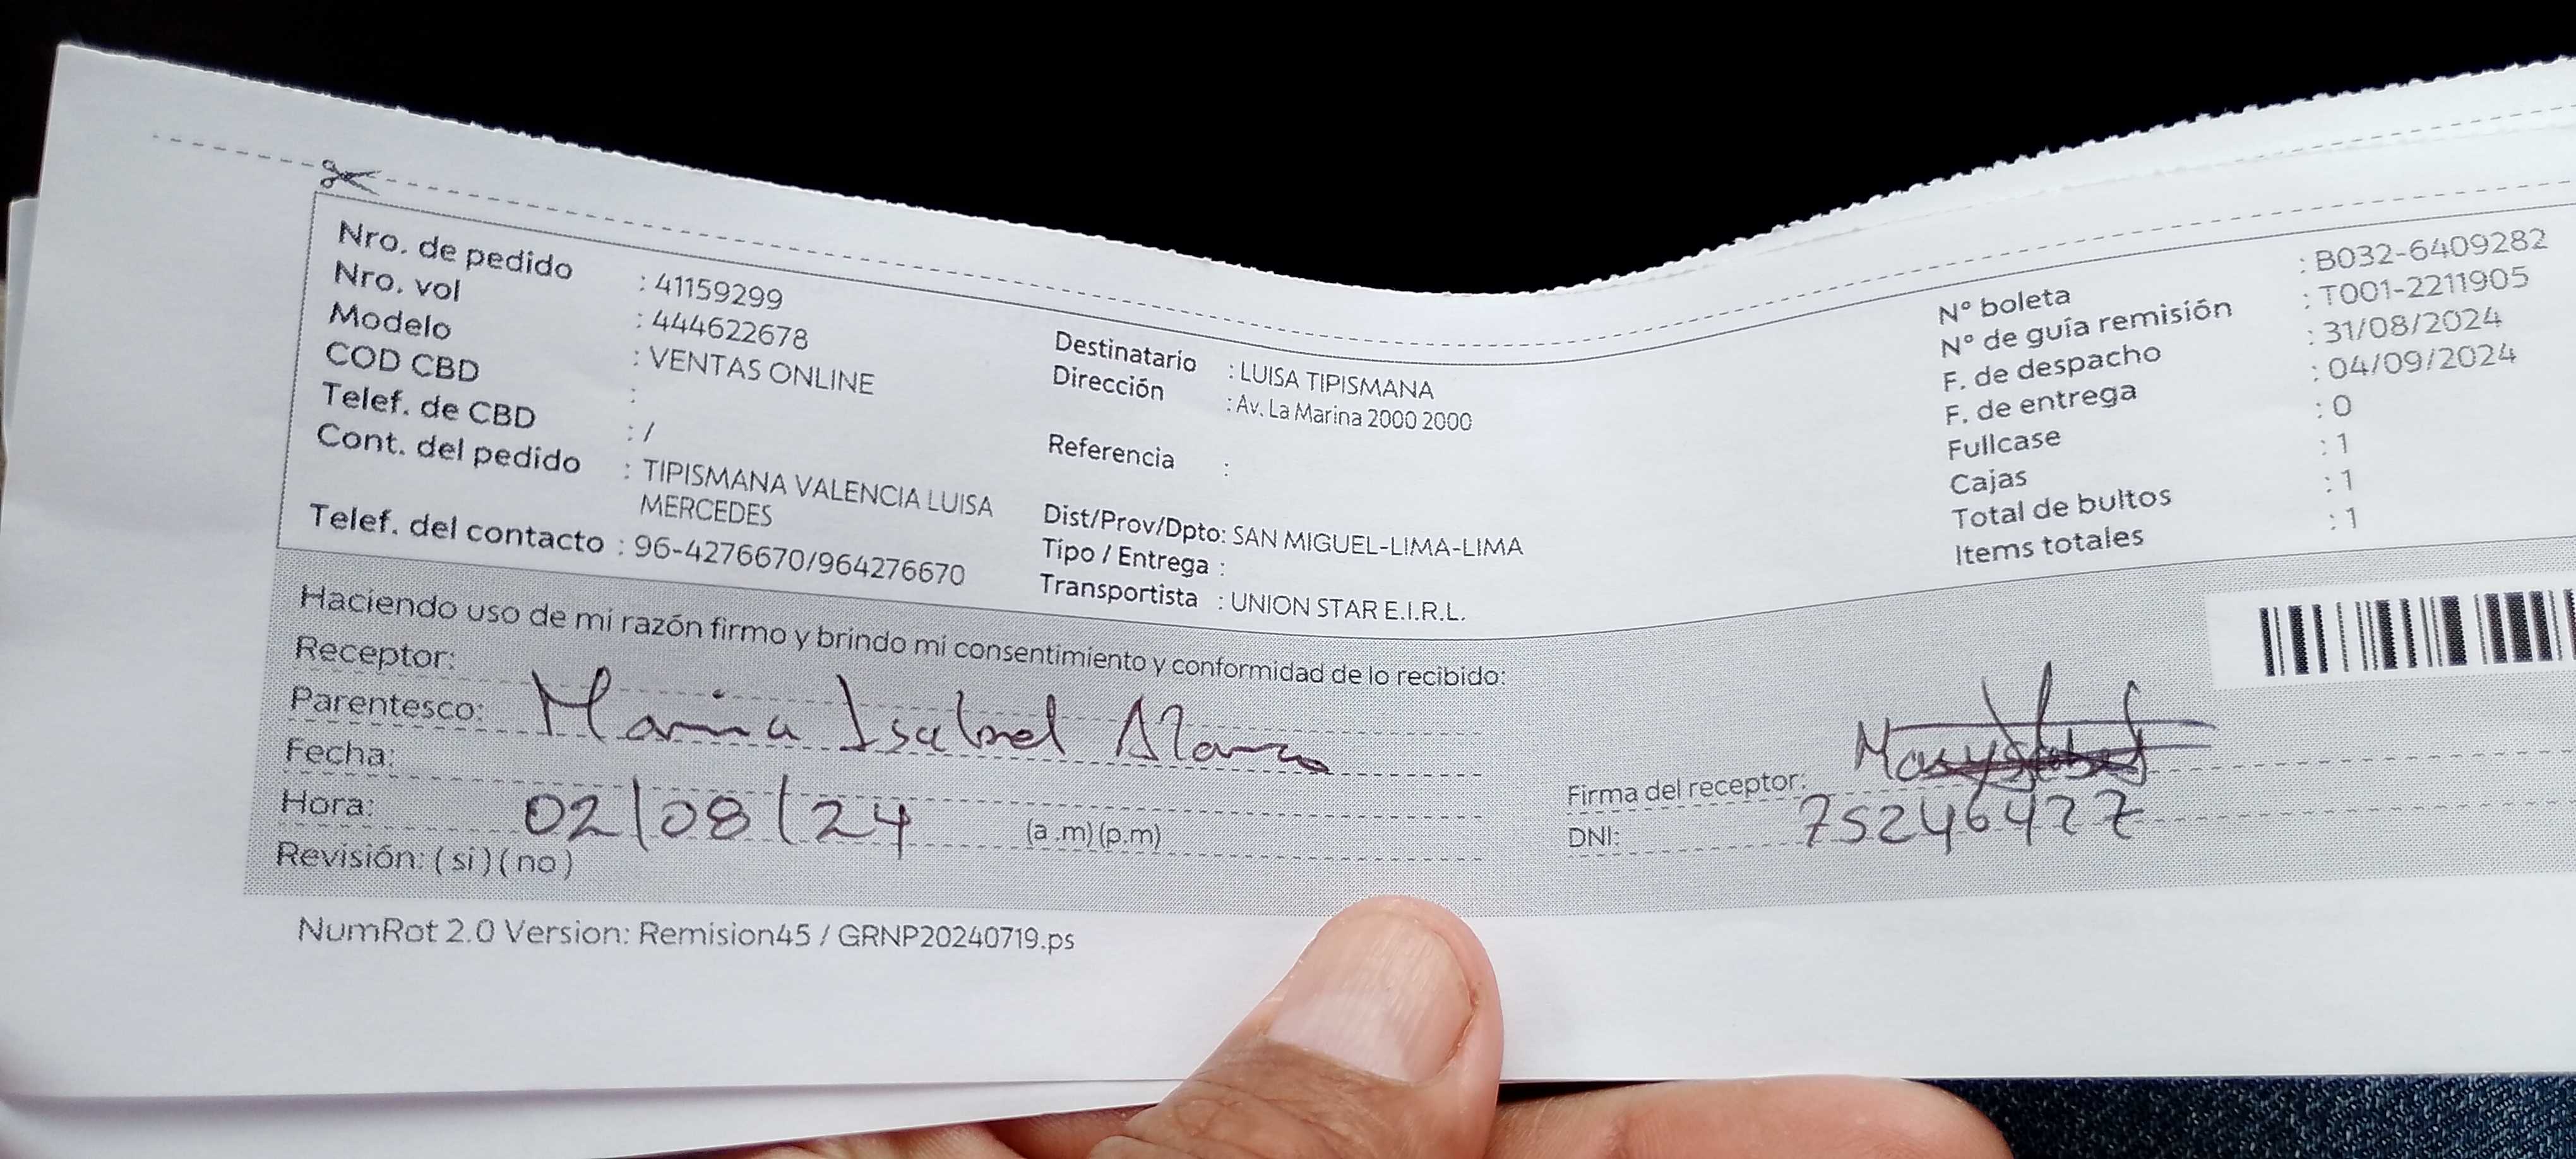 Nro. de pedido : 41159299
Nro. vol : 444622678
Modelo : VENTAS ONLINE
COD CBD :
Telef. de CBD : /
Cont. del pedido : TIPISMANA VALENCIA LUISA
MERCEDES
Telef. del contacto : 96-4276670/964276670
Destinatario : LUISA TIPISMANA
Dirección : Av. La Marina 2000 2000
Referencia :
Dist/Prov/Dpto: SAN MIGUEL-LIMA-LIMA
Tipo / Entrega :
Transportista : UNION STAR E.I.R.L.
N° boleta : B032-6409282
N° de guía remisión : T001-2211905
F. de despacho : 31/08/2024
F. de entrega : 04/09/2024
Fullcase : 0
Cajas : 1
Total de bultos : 1
Items totales : 1
Haciendo uso de mi razón firmo y brindo mi consentimiento y conformidad de lo recibido:
Receptor:
Parentesco: Maria Isabel
Fecha:
Hora: 02/08/24 (a .m) (p.m)
Revisión: ( si ) ( no )
Firma del receptor:
DNI: 75246427
NumRot 2.0 Version: Remision45 / GRNP20240719.ps